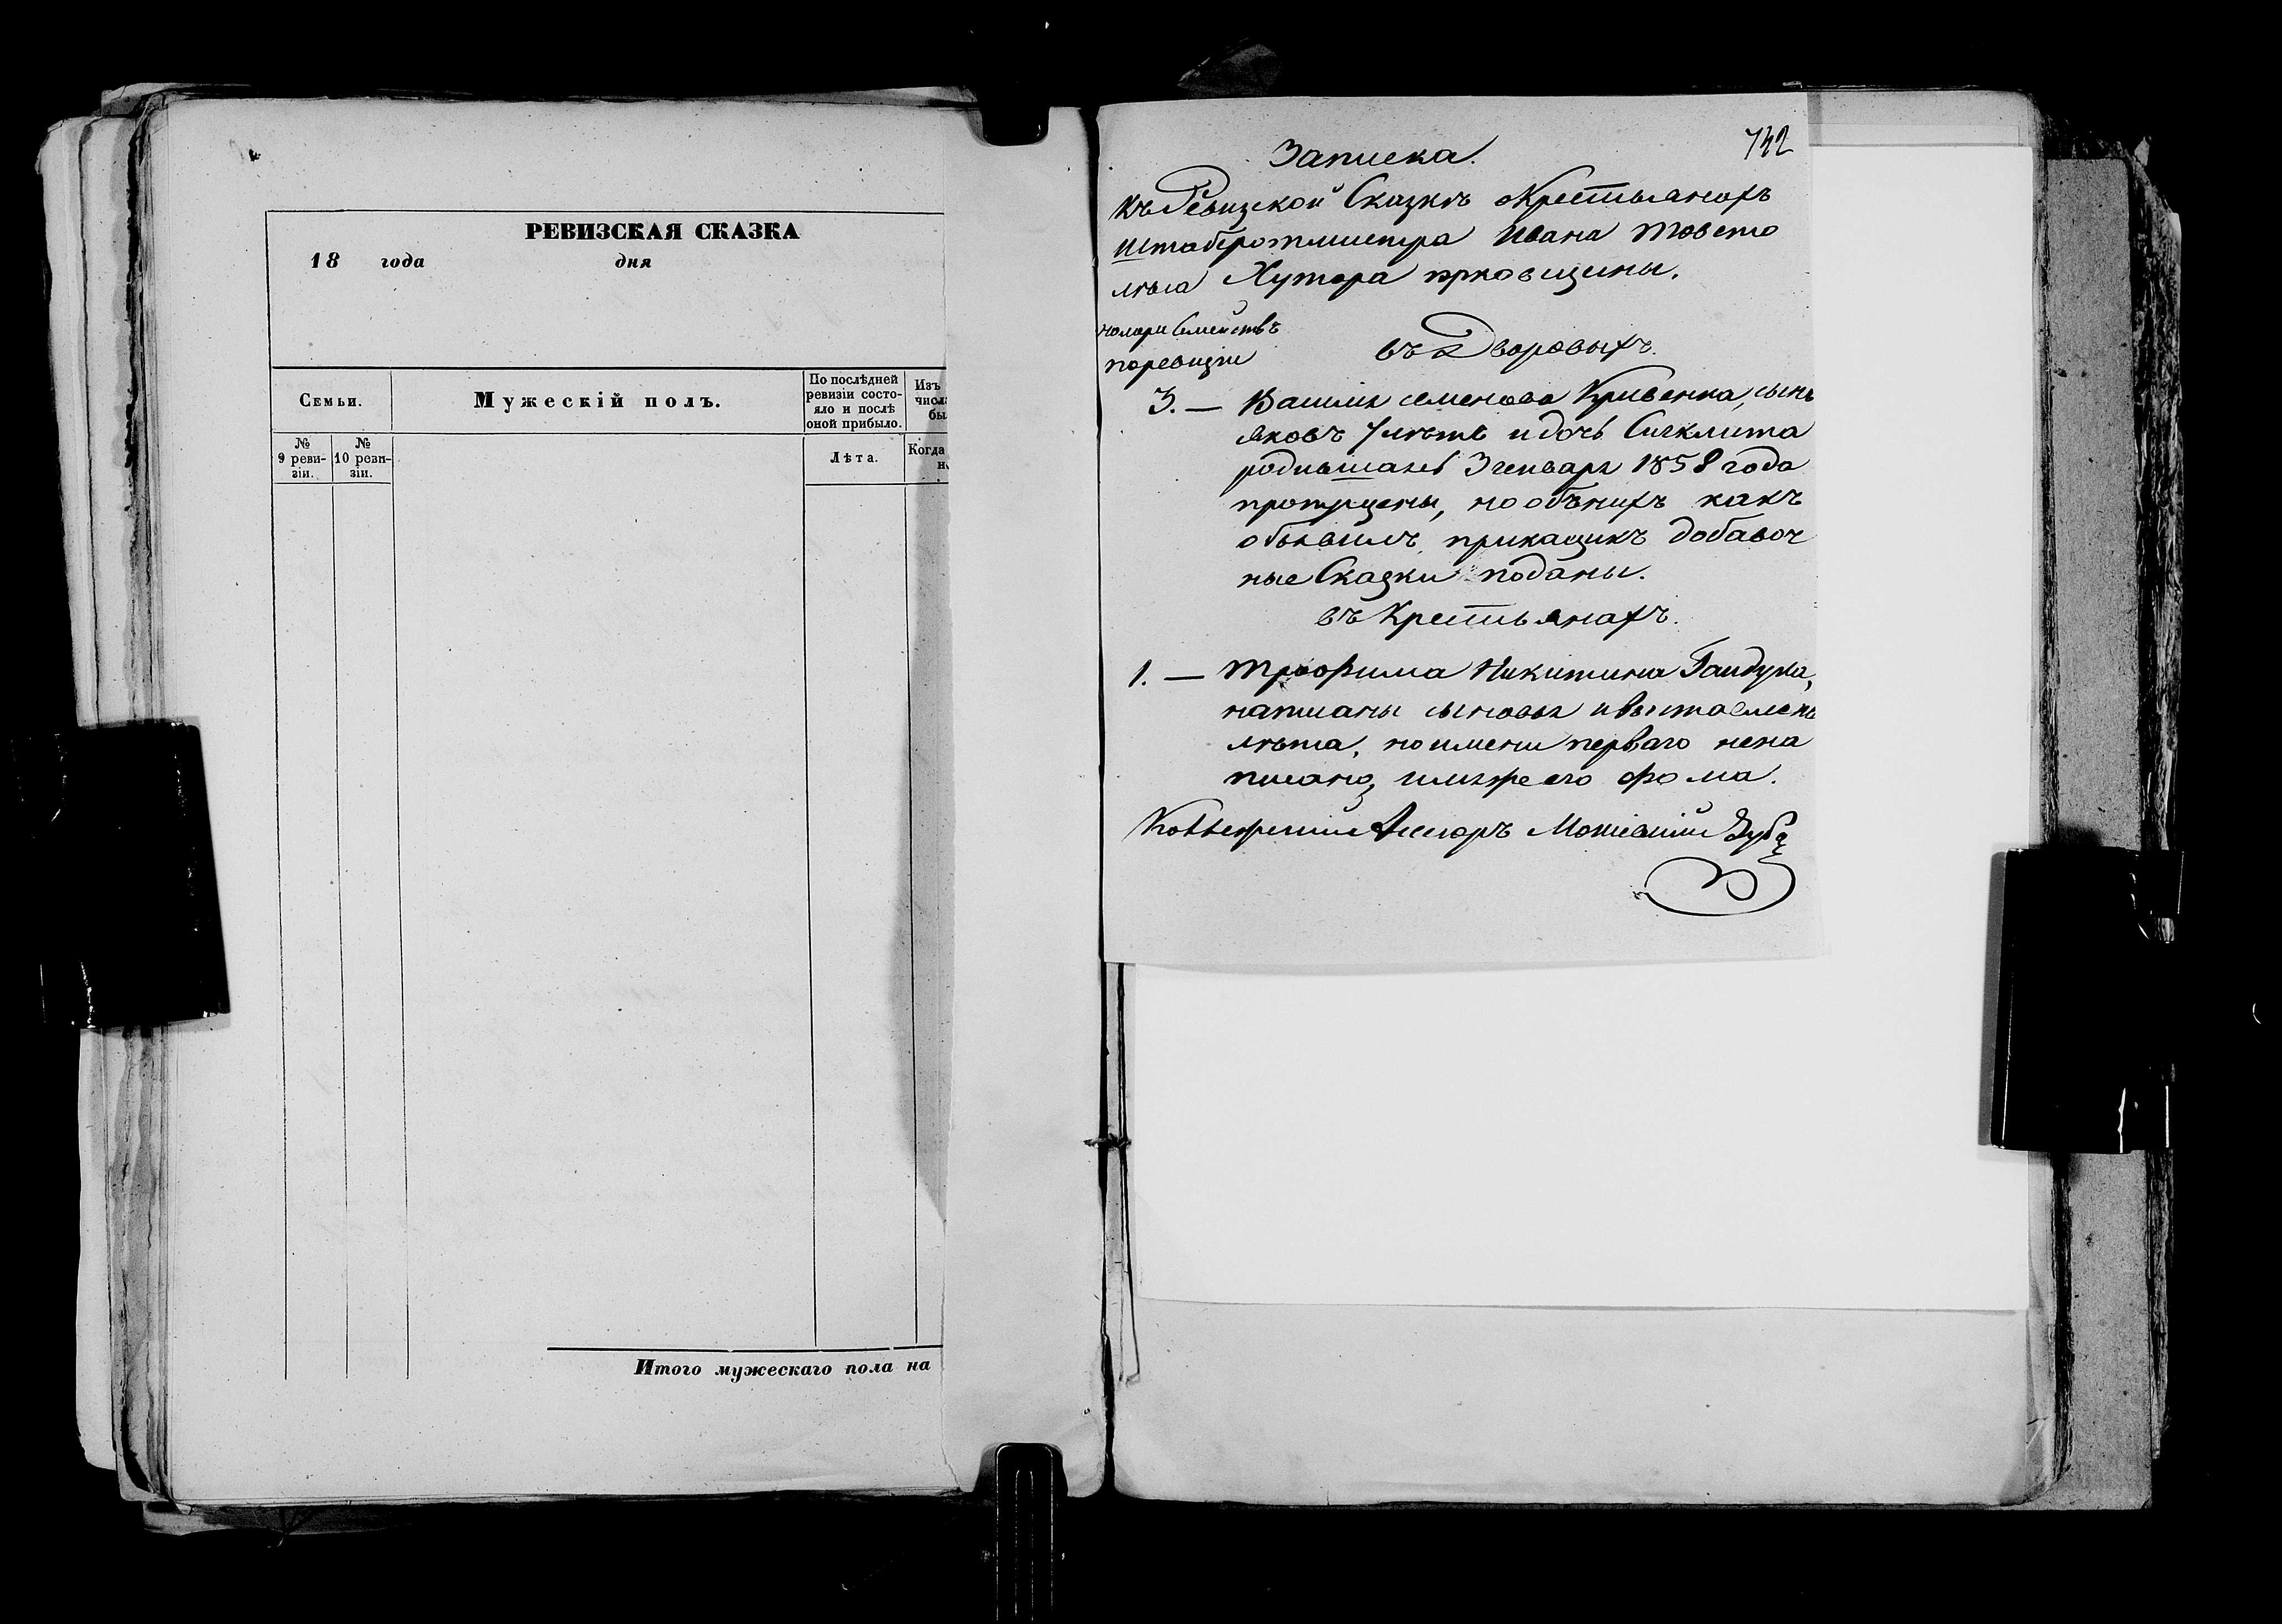 РЕВИЗСКАЯ СКАЗКА
18 года дня
Семьи.
Мужескій полъ.
По послѣдней
ревизіи состо-
яло и послѣ
оной прибыло.
Изъ
числ
бы
№
9 реви-
зіи.
№
10 реви-
зіи.
Лѣта.
Когда
н
Итого мужескаго пола на
742
Записка.
Къ Ревизской Сказкѣ о Крестьянахъ
Штабротмистра Ивана Товсто
лѣса Хутора
номѣри Семействъ
поревизіи
въ Дворовыхъ.
3. — Василія семенова Кривенка, сынъ
Яковъ 7 лѣтъ и дочь Сигклита
родившаясь 3 генваря 1858 года
пропущены, но объ нихъ какъ
объявилъ прикащикъ добавоч
ные Сказки поданы.
въ Крестьянахъ.
1. — Трофима Никитина Гайдука,
написаны сыновья и выставлены
лѣта, но имени перваго нена
писано, имя же его Фома.
Коллежскій Асессоръ